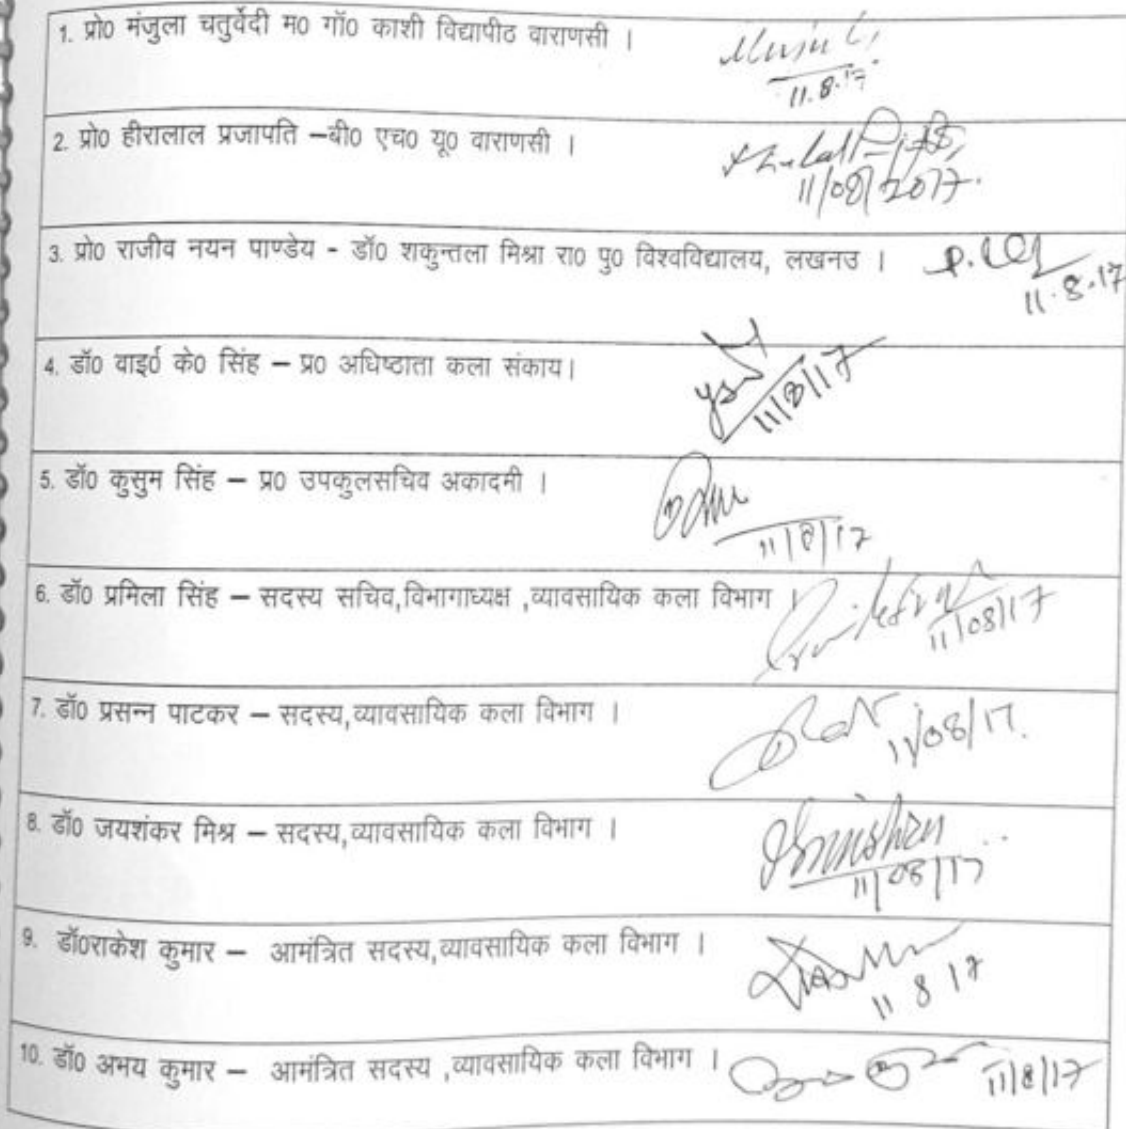 1. प्रो0 मंजुला चतुर्वेदी म0 गॉ0 काशी विद्यापीठ वाराणसी ।
11.8.17
2. प्रो0 हीरालाल प्रजापति –बी0 एच0 यू0 वाराणसी ।
11/08/2017.
3. प्रो0 राजीव नयन पाण्डेय - डॉ0 शकुन्तला मिश्रा रा0 पु0 विश्वविद्यालय, लखनउ ।
11.8.17
4. डॉ0 वाई0 के0 सिंह – प्र0 अधिष्ठाता कला संकाय।
11/8/17
5. डॉ0 कुसुम सिंह – प्र0 उपकुलसचिव अकादमी ।
11/8/17
6. डॉ0 प्रमिला सिंह – सदस्य सचिव,विभागाध्यक्ष ,व्यावसायिक कला विभाग ।
11/08/17
7. डॉ0 प्रसन्न पाटकर – सदस्य,व्यावसायिक कला विभाग ।
11/08/17.
8. डॉ0 जयशंकर मिश्र – सदस्य,व्यावसायिक कला विभाग ।
11/08/17
9. डॉ0राकेश कुमार – आमंत्रित सदस्य,व्यावसायिक कला विभाग ।
11 8 17
10. डॉ0 अभय कुमार – आमंत्रित सदस्य ,व्यावसायिक कला विभाग ।
11/8/17